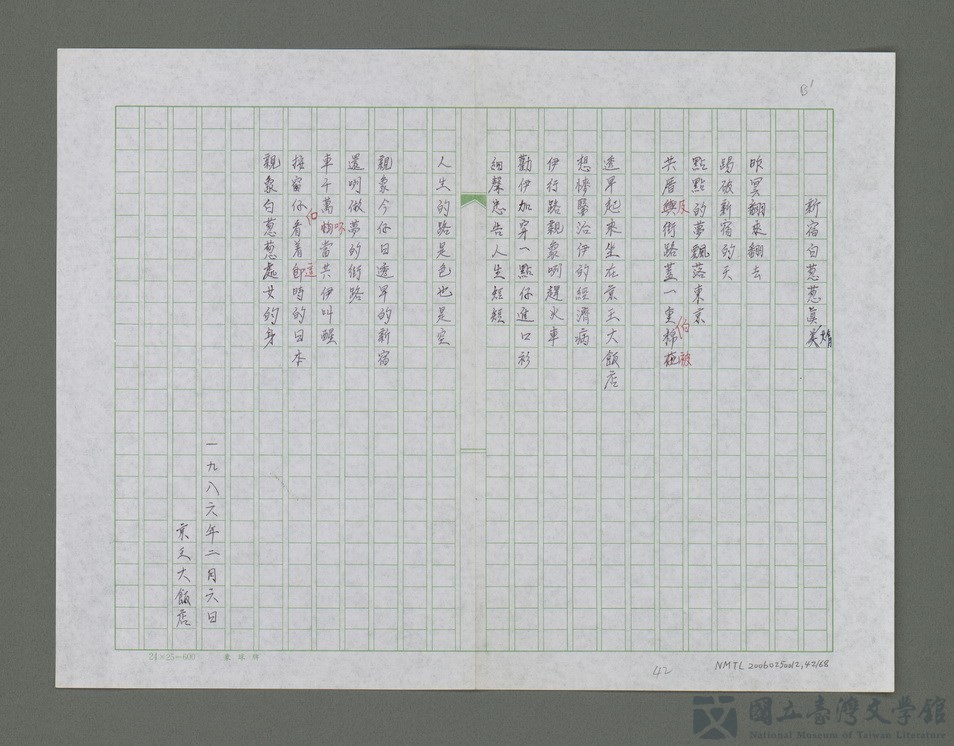 B'
新宿白蔥蔥眞美
昨冥翻來翻去
踢破新宿的天
點點的夢飄落東京
共厝與街路蓋一重棉
伯
被
透早起來坐在京王大飯店
想慘醫治伊的經濟病
伊行路親象咧趕火車
勸伊加穿一點仔進口衫
細聲忠告人生短短
人生的路是色也是空
親象今仔日透早的新宿
還咧做夢的街路
車千萬當共伊叫醒
呀
按窗仔看着即時的日本
這
親象白蔥蔥處女的身
一九八六年二月六日
京王大飯店
24×25=600
42
NMTL 20060250012,42/68
國立臺灣文學館
National Museum of Taiwan Literature